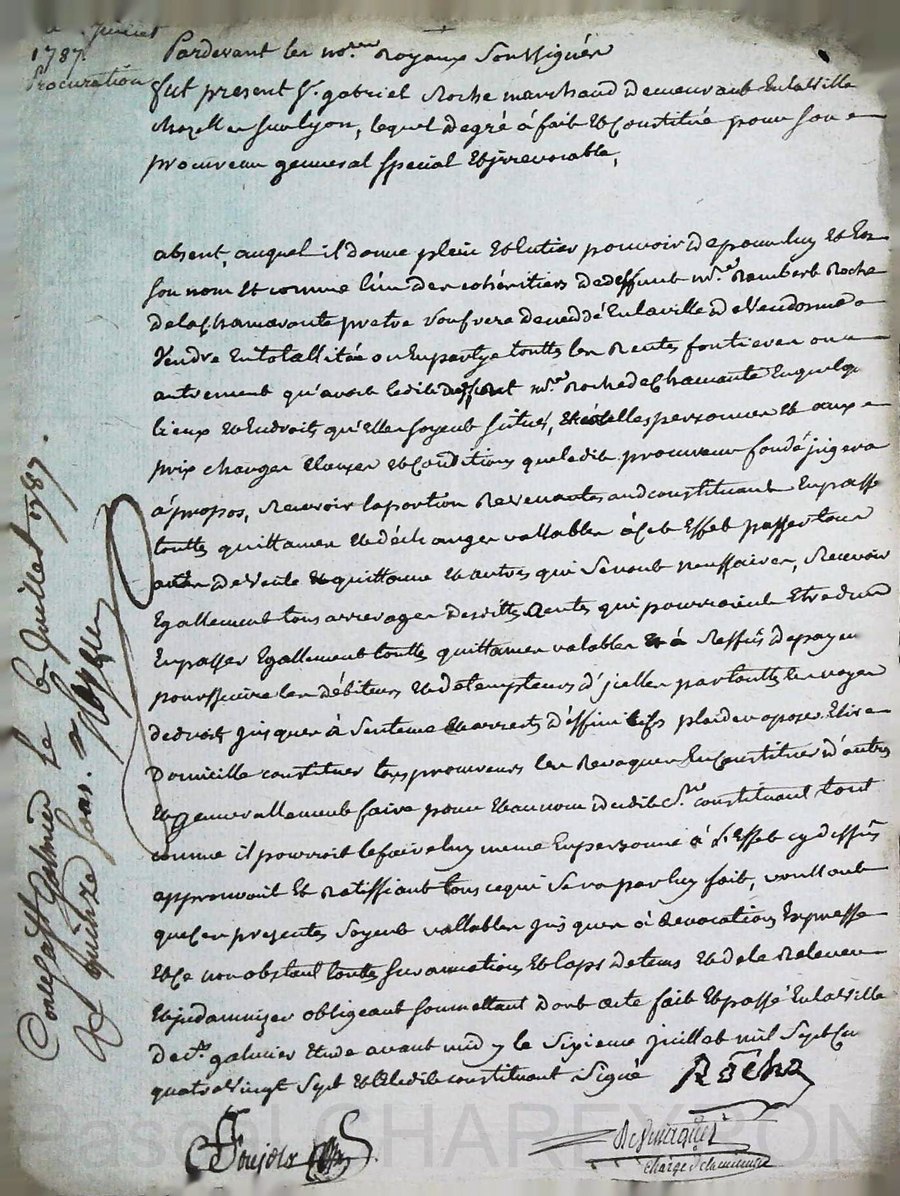 juillet
1787
Procuration
Pardevant les no.res Royaux Soussignés
fut present Sr. gabriel Roche marchand demeurant En la Ville
chazelles sur lyon, lequel degré á fait et Constitué pour son
procureur general special et irrevocable,
absent, auquel il donne plein et Entier pouvoir de pour luy et En
son nom et comme l'un des cohéritiers de deffunt mre. Rambert Roche
de la Chamarante pretre decedé En la ville de Vendome
Vendre En totallitée ou En partye touttes les Rentes foncieres ou
autrement qu'avoit ledit deffunt mre. Roche de Chamante En quelq
lieux et Endroits qu'elles soyent situés, et a telles personnes et aux
prix charges Clauses et Conditions que ledit procureur fondé jugera
á propos, Recevoir la portion Revenante aud constituant En passer
touttes quittances et décharges vallables á cet Effet passer tous
actes de Vente et quittance et autres qui Seront neссaires, Recevoir
Egallement tous arrerages desdittes Rentes qui pourroient Etre dus
En passer Egallement touttes quittances valables et á Reffus de payer
poursuivre les débiteurs et detempteurs d'jcelles par touttes les voyes
de droit jusques á Sentence et arrets deffinitifs plaider oposer Elire
Domicille constituer tous procureurs les Revoquer En Constituer d'autres
et generallement faire pour et au nom dudit Sr. constituant tout
comme il pourroit le faire luy meme En personne á l'Effet cy dessus
approuvant Et Ratiffiant tous ce qui Sera par luy fait, voullant
que ces presentes Soyent vallables jusques á Revocation Expresse
et Ce non obstant toutte surannation et laps de tems et de le Relever
et jndamnizer obligeant soumettant dont acte fait et passé En la Ville
de St. galmier Etude avant midy le Sixieme juillet mil Sept Cen
quatre Vingt Sept et Ledit constituant Signé
Roche
Conté a St Galmier le 6 Juillet 1787.
R quinze sous.
Pascal CHAREYRON